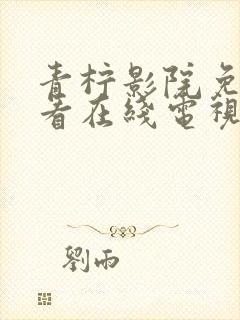 青柠影院免
看在线電視
劉雨